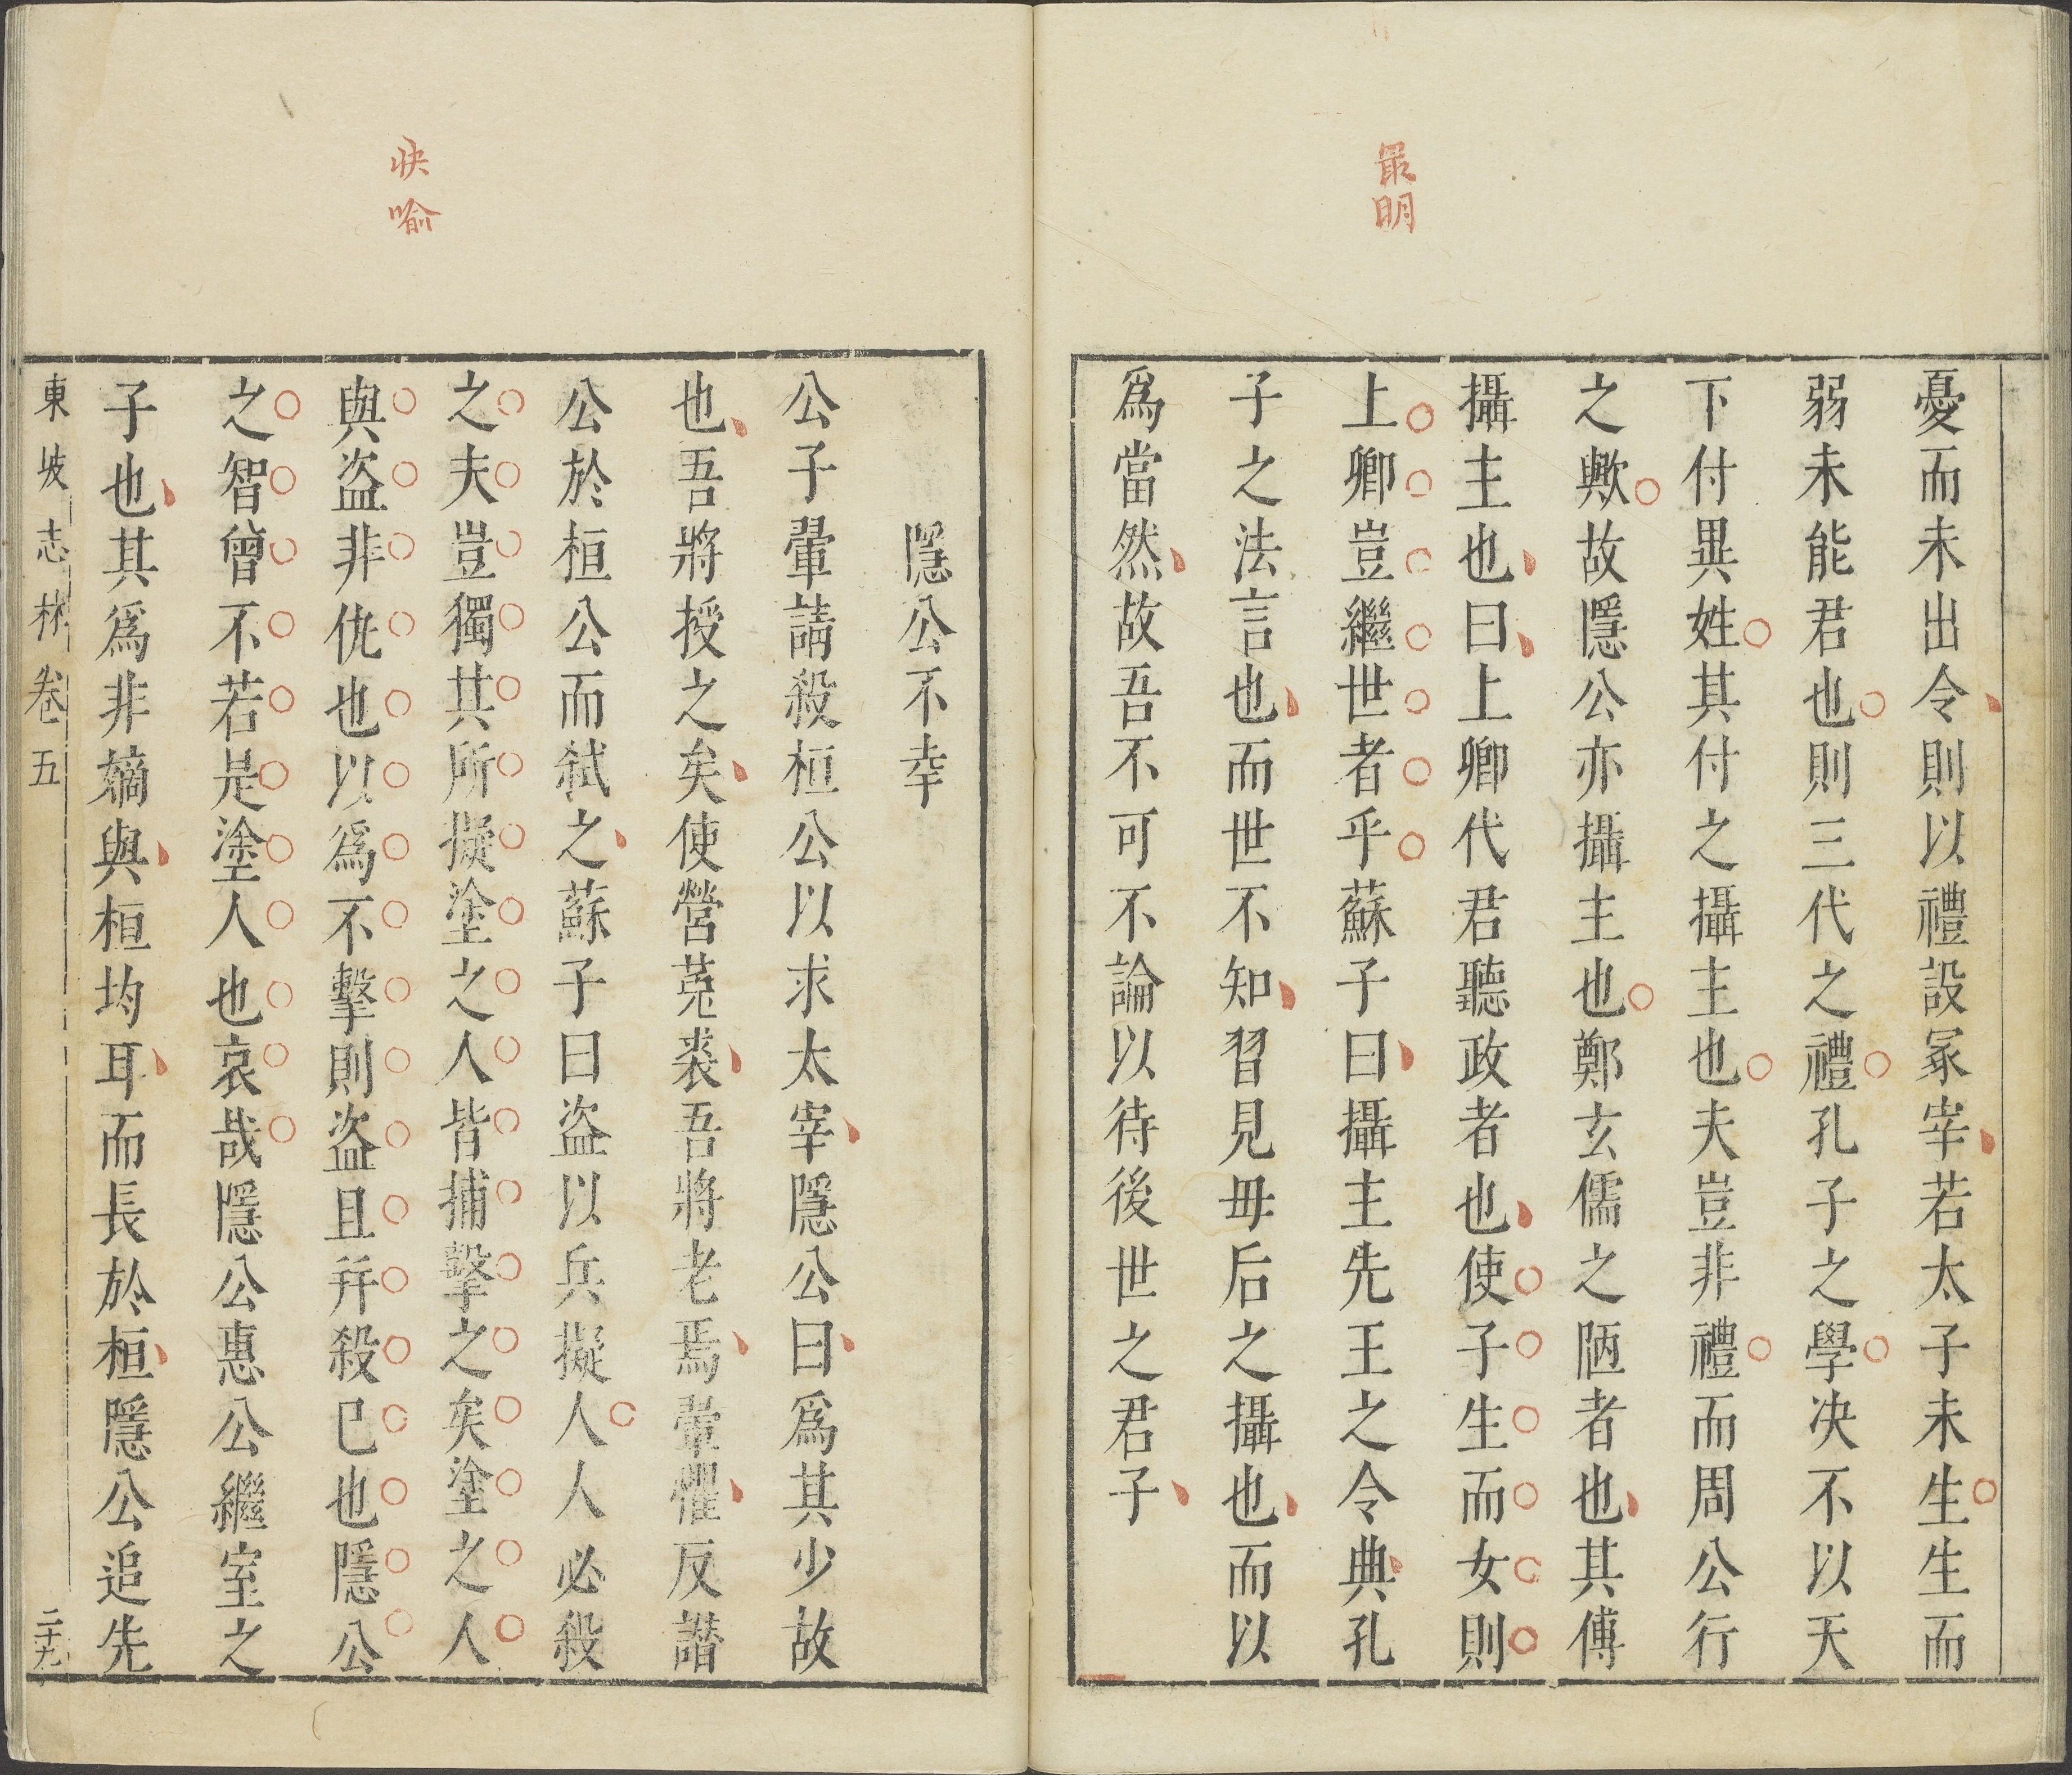 最明
憂而未出令則以禮設冢宰若太子未生生而
弱未能君也則三代之禮孔子之學決不以天
下付異姓其付之攝主也夫豈非禮而周公行
之歟故隱公亦攝主也鄭玄儒之陋者也其傳
攝主也曰上卿代君聽政者也使子生而女則
上卿豈繼世者乎蘇子曰攝主先王之令典孔
子之法言也而世不知習見毋后之攝也而以
爲當然故吾不可不論以待後世之君子
快喻
隱公不幸
公子翬請殺桓公以求太宰隱公曰爲其少故
也吾將授之矣使營菟裘吾將老焉翬懼反譖
公於桓公而弒之蘇子曰盜以兵擬人人必殺
之夫豈獨其所擬塗之人皆捕擊之矣塗之人
與盜非仇也以爲不擊則盜且并殺已也隱公
之智曾不若是塗人也哀哉隱公惠公繼室之
子也其爲非嫡與桓均耳而長於桓隱公追先
東坡志林卷五
二十九